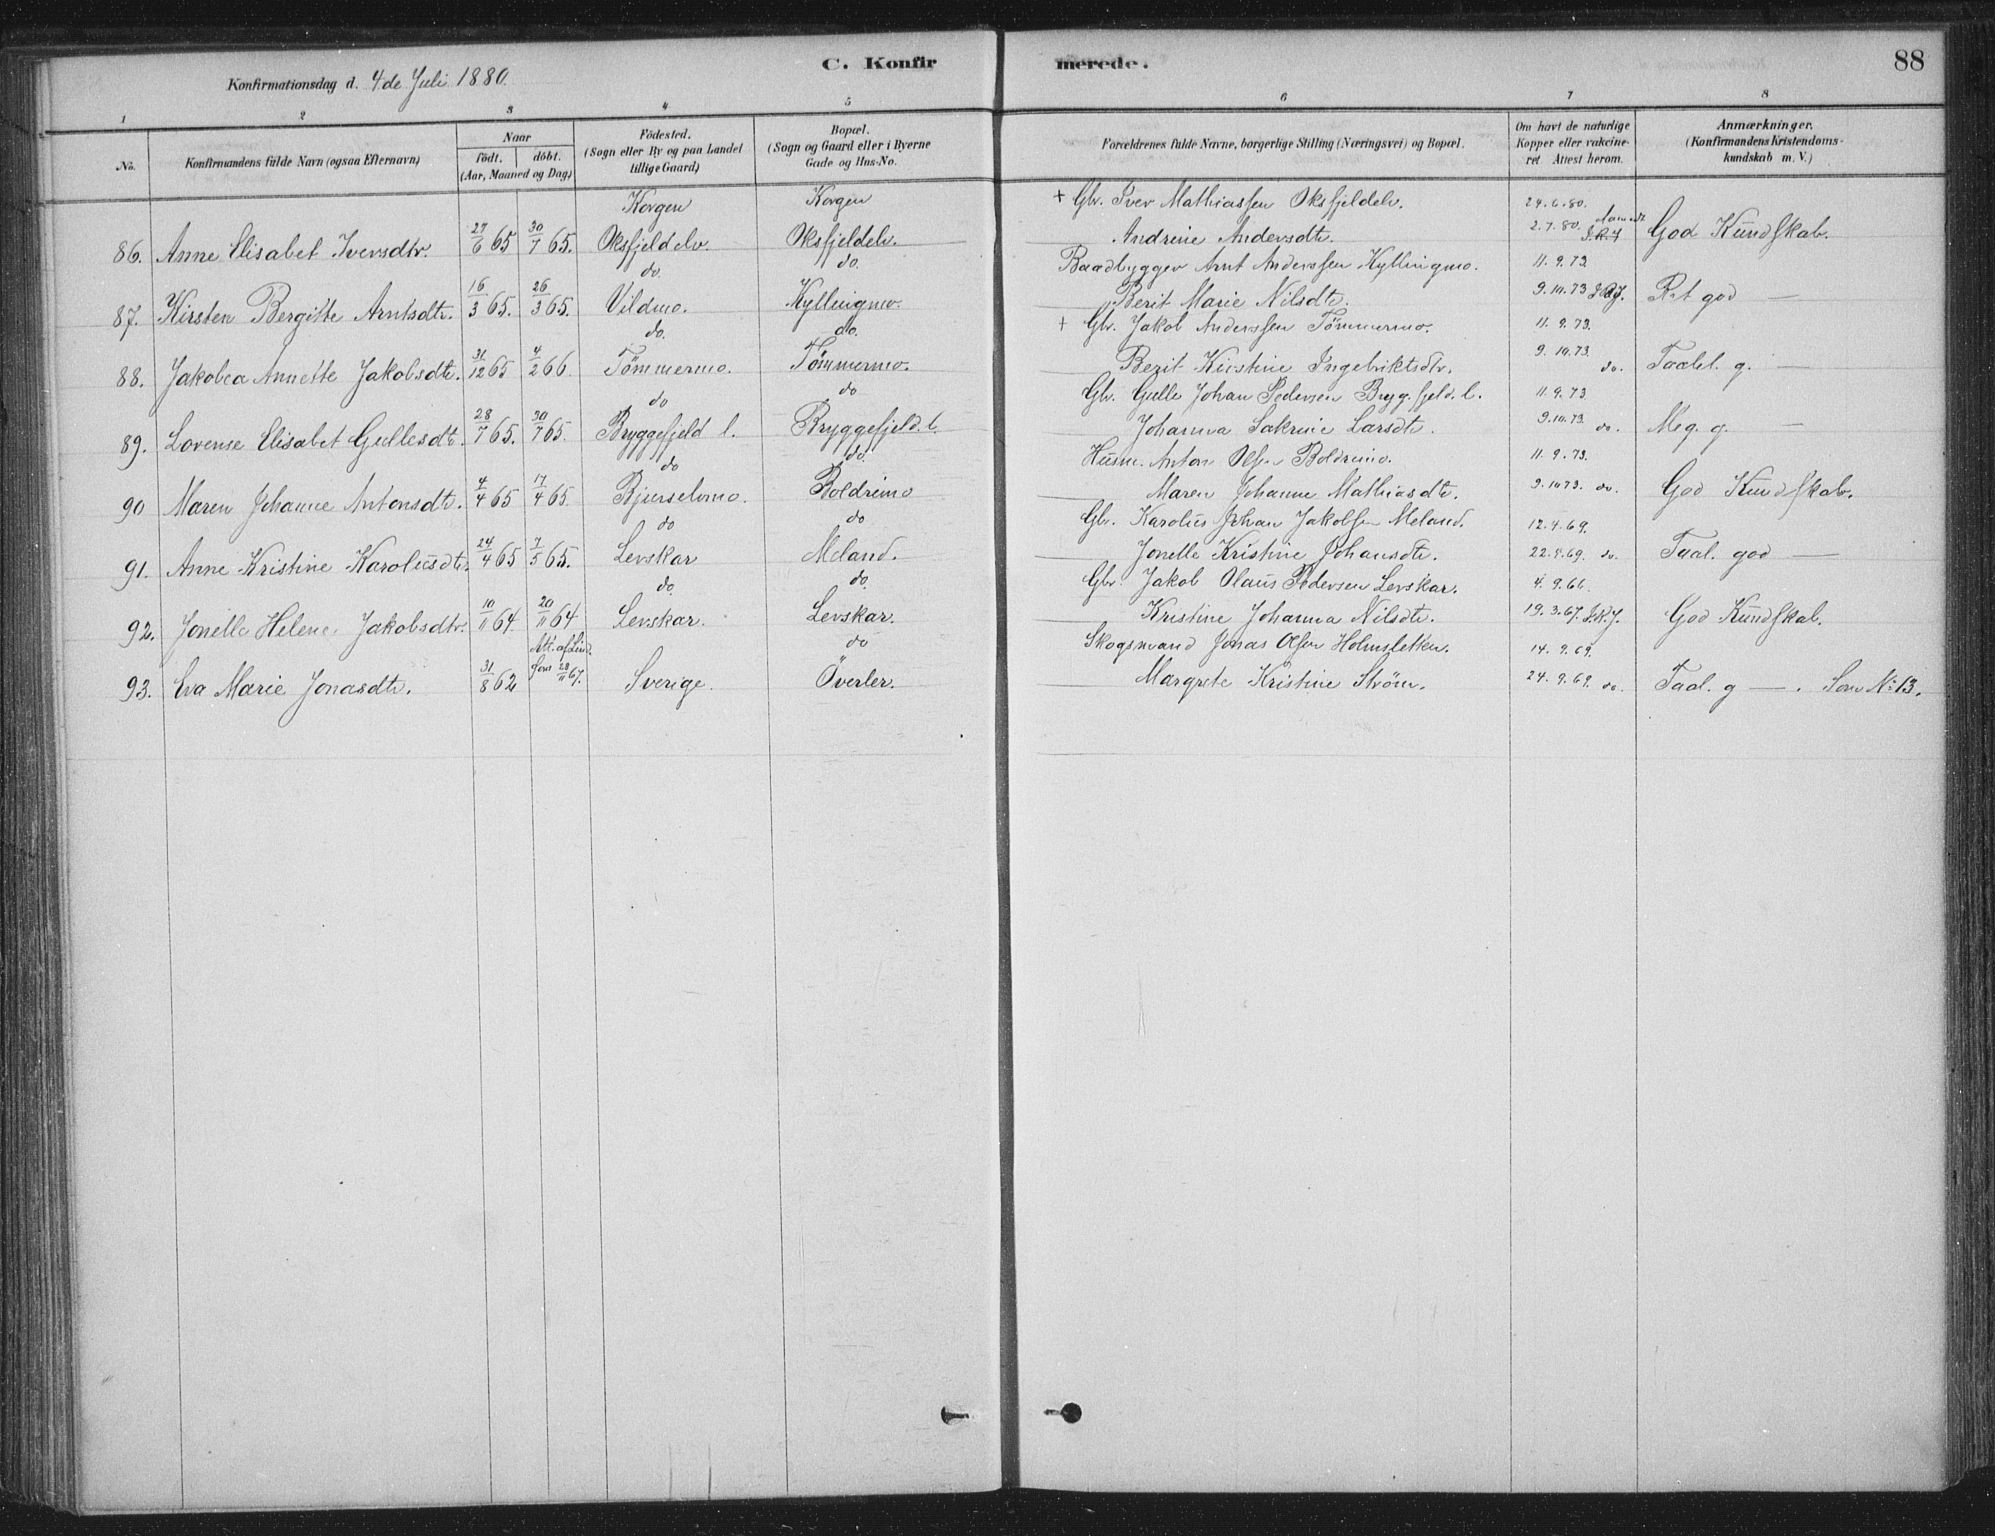 C. Konfirmerede.
88
Konfirmationsdag d. 4de Juli 1880.
1 2 3 4 5 6 7 8
No. Konfirmandens fulde Navn (ogsaa Efternavn) Naar födt. döbt. (Aar, Maaned og Dag) Födested. (Sogn eller By og paa Landet tillige Gaard) Bopæl. (Sogn og Gaard eller i Byerne Gade og Hus-No. Forældrenes fulde Navne, borgerlige Stilling (Næringsvei) og Bopæl. Om havt de naturlige Kopper eller vakcineret Attest herom. Anmærkninger. (Konfirmandens Kristendomskundskab m. V.)
Korgen Korgen + Gbr. Iver Mathiassen Oksfjeldelv. 24.6.80.
86. Anne Elisabet Iversdtr. 27/6 65 30/7 65. Oksfjeldelv Oksfjeldelv. Andrine Andersdtr. 2.7.80. God Kundskab.
do. do. Baadbygger Arnt Anderssen Kyllingmo. 11.9.73
87. Kirsten Bergitte Arntsdtr. 16/3 65. 26/3 65. Vildmo. Kyllingmo. Berit Marie Nilsdtr. 9.10.73 Ret god —
do. do. + Gbr. Jakob Anderssen Tömmermo. 11.9.73.
88. Jakobea Annette Jakobsdtr. 31/12 65 4/2 66. Tömmermo. Tömmermo. Berit Kirstine Ingebriktsdtr. 9.10.73. do. Taalel. g. —
do do Gbr. Gulle Johan Pedersen Brygfjeld. l. 11.9.73
89. Lovense Elisabet Gullesdtr. 28/7 65. 30/7 65. Bryggefjeld l. Bryggefjeld. l. Johanna Sakrine Larsdtr. 9.10.73. do. Meg. g. —
do do. Husm. Anton Olsen Boldremo. 11.9.73.
90 Maren Johanne Antonsdtr. 4/4 65 17/4 65. Bjurselvmo. Boldremo Maren Johanne Mathiasdtr. 9.10.73. do. God Kundskab.
do do Gbr. Karolus Johan Jakobsen Meland. 12.9.69.
91. Anne Kristine Karolusdtr. 24/4 65 7/5 65. Levskar Meland. Jonelle Kristine Johansdtr. 22.9.69. do. Taal. god —
do. do. Gbr. Jakob Olaus Pedersen Levskar. 4.9.66.
92. Jonelle Helene Jakobsdtr. 10/11 64. 20/11 64 Levskar. Levskar. Kristine Johanna Nilsdtr. 19.3.67. God Kundskab.
Att. af do Skogsmand Jonas Olsen Holmsletten. 14.9.69.
93. Eva Marie Jonasdtr. 31/8 62 28/11 67. Sverige. Överler. Margrete Kristine Ström. 24.9.69. do. Taal. g —. Som No 13.